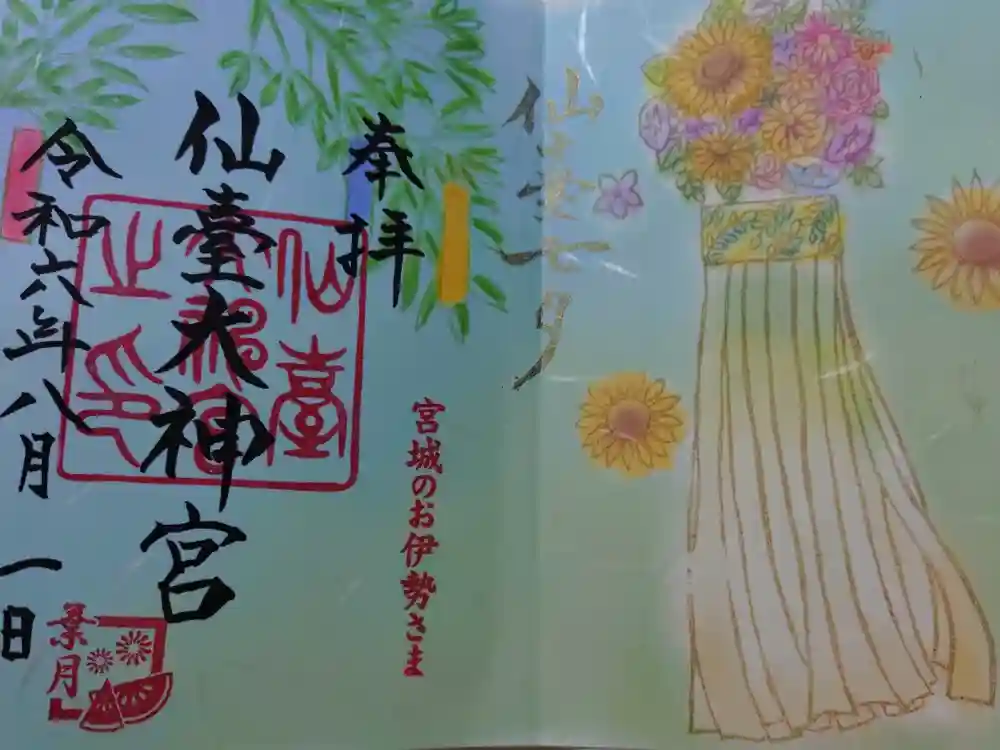 仙臺七夕
奉拝
宮城のお伊勢さま
仙臺大神宮
仙臺神宮之印
令和六年八月一日
葉月